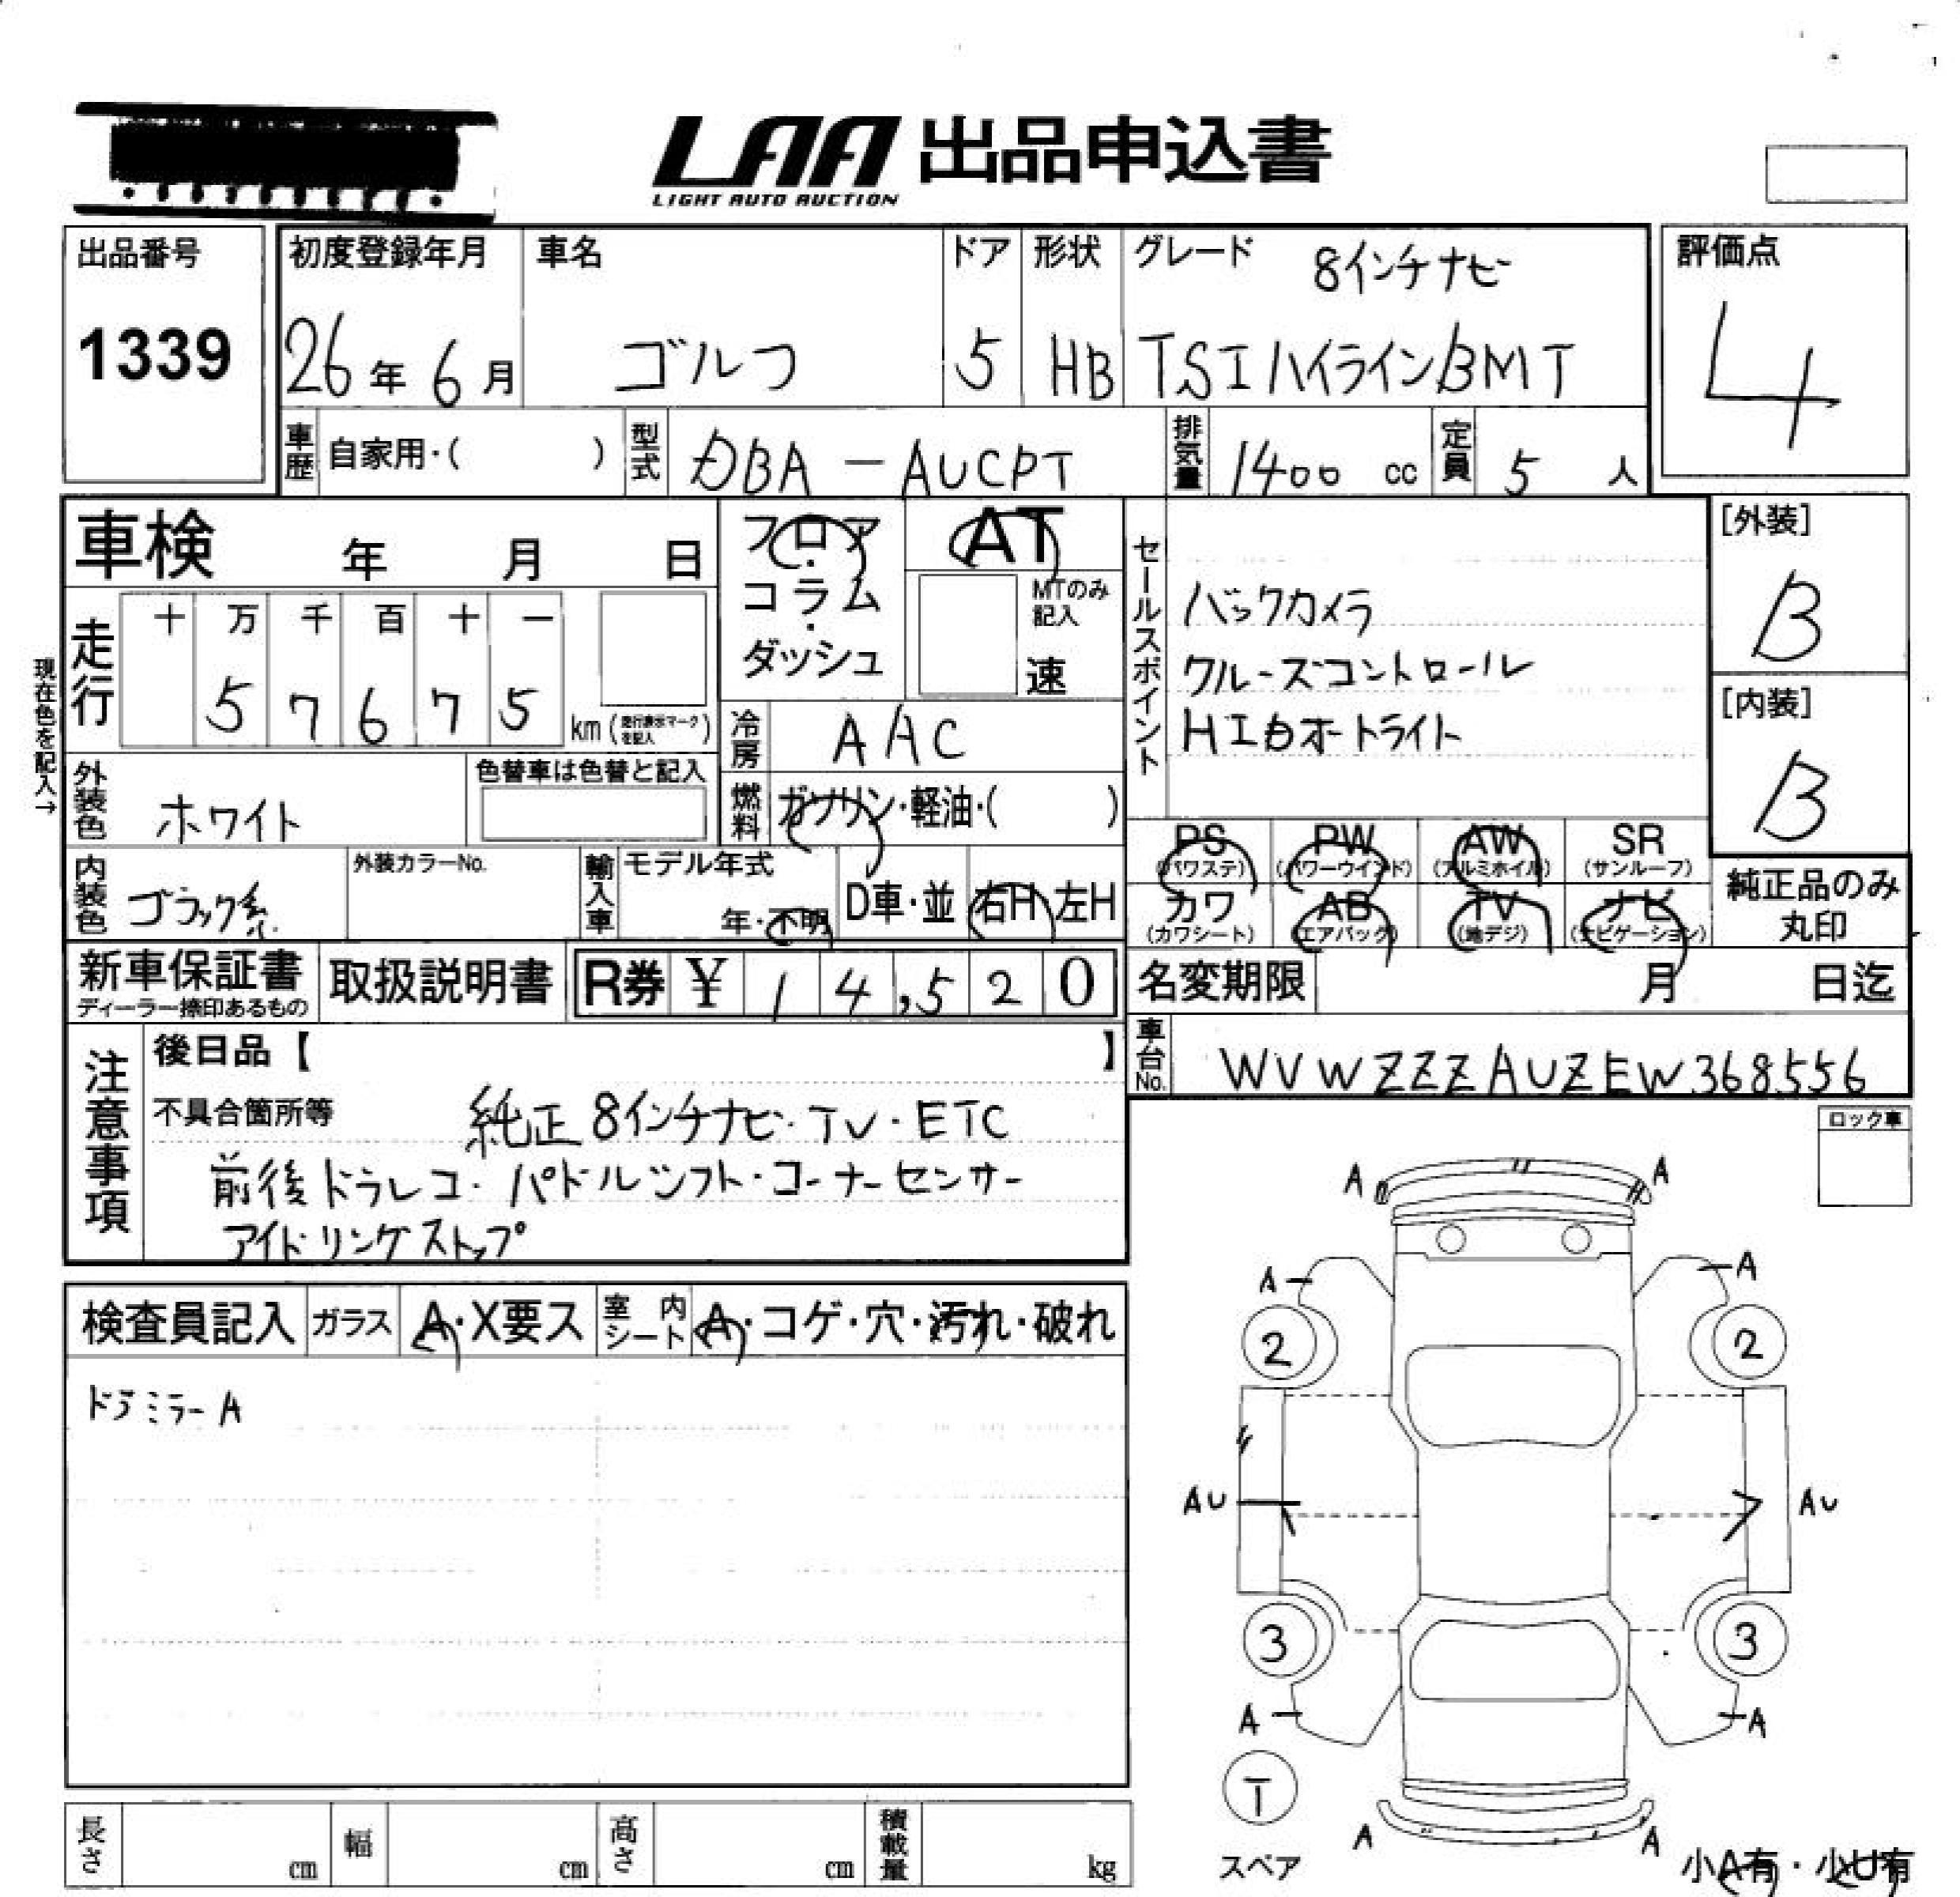 LAA 出品申込書
LIGHT AUTO AUCTION
出品番号
1339
初度登録年月
26年 6月
車名
ゴルフ
ドア
5
形状
HB
グレード
8インチナビ
TSIハイラインBMT
評価点
4
車歴 自家用・( )
型式 DBA-AUCPT
排気量 1400 cc
定員 5 人
車検 年 月 日
フロア・コラム・ダッシュ
AT
MTのみ記入
速
セールスポイント
バックカメラ
クルーズコントロール
HIDオートライト
[外装]
B
[内装]
B
現在色を記入→
走行
十 万 千 百 十 一
5 7 6 7 5
km (走行表示マークを記入)
冷房 AAC
燃料 ガソリン・軽油・( )
外装色 ホワイト
色替車は色替と記入
内装色 ブラック系
外装カラーNo.
輸入車
モデル年式
年・不明
D車・並
右H 左H
PS (パワステ)
PW (パワーウインド)
AW (アルミホイル)
SR (サンルーフ)
カワ (カワシート)
AB (エアバック)
TV (地デジ)
ナビ (ナビゲーション)
純正品のみ
丸印
新車保証書
ディーラー捺印あるもの
取扱説明書
R券 ¥ 14,520
名変期限 月 日迄
車台No. WVWZZZAUZEW368556
注意事項
後日品【 】
不具合箇所等
純正8インチナビ・TV・ETC
前後ドラレコ・パドルシフト・コーナーセンサー
アイドリングストップ
ロック車
検査員記入
ガラス A・X要ス
室内シート A・コゲ・穴・汚れ・破れ
ドアミラーA
A A
A A
2 2
AU AU
3 3
A A
T
スペア
A A
小A有・小U有
長さ cm
幅 cm
高さ cm
積載量 kg